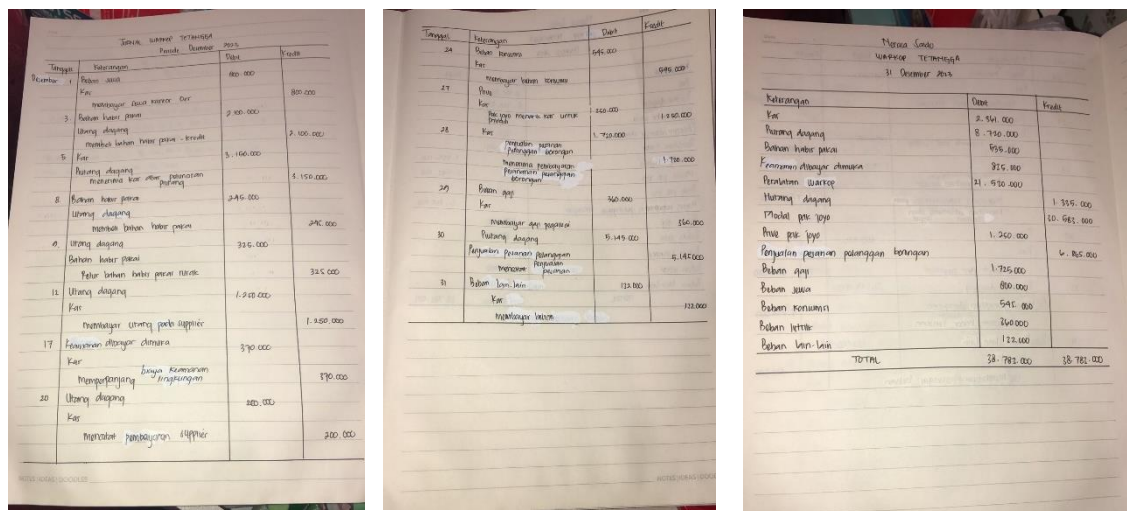 JURNAL WARKOP TETANGGA
Periode Desember 2023
Tanggal Keterangan Debit Kredit
Desember 1 Beban sewa 800.000
Kas 800.000
membayar sewa kantor
3 Bahan habis pakai 2.100.000
Utang dagang 2.100.000
membeli bahan habis pakai - kredit
5 Kas 3.150.000
Piutang dagang 3.150.000
menerima kas atas pelunasan piutang
8 Bahan habis pakai 245.000
Utang dagang
membeli bahan habis pakai
9 Utang dagang 325.000
Bahan habis pakai
Retur bahan habis pakai rusak 325.000
12 Utang dagang 1.250.000
Kas
membayar utang pada supplier 1.250.000
17 Keamanan dibayar dimuka 370.000
Kas
memperpanjang biaya keamanan lingkungan 370.000
20 Utang dagang 200.000
Kas
mencatat pembayaran supplier 200.000
Tanggal Keterangan Debit Kredit
24 Beban konsumsi 545.000
Kas 545.000
membayar beban konsumsi
27 Prive
Kas 1.260.000 1.260.000
Pak joyo menarik kas untuk pribadi
28 Kas 1.720.000
penjualan pesanan pelanggan borongan 1.720.000
menerima pembayaran pesanan pelanggan borongan
29 Beban gaji 560.000
Kas
membayar gaji pegawai 560.000
30 Piutang dagang 5.145.000
Penjualan pesanan pelanggan 5.145.000
mencatat penjualan pesanan
31 Beban lain-lain 122.000
Kas 122.000
membayar beban
Neraca Saldo
WARKOP TETANGGA
31 Desember 2023
Keterangan Debit Kredit
Kas 2.361.000
Piutang dagang 8.720.000
Bahan habis pakai 835.000
Keamanan dibayar dimuka 825.000
Peralatan warkop 21.530.000
Hutang dagang 1.335.000
Modal pak joyo 30.583.000
Prive pak joyo 1.260.000
Penjualan pesanan pelanggan borongan 6.865.000
Beban gaji 1.725.000
Beban sewa 800.000
Beban konsumsi 545.000
Beban listrik 360.000
Beban lain-lain 122.000
TOTAL 38.782.000 38.782.000